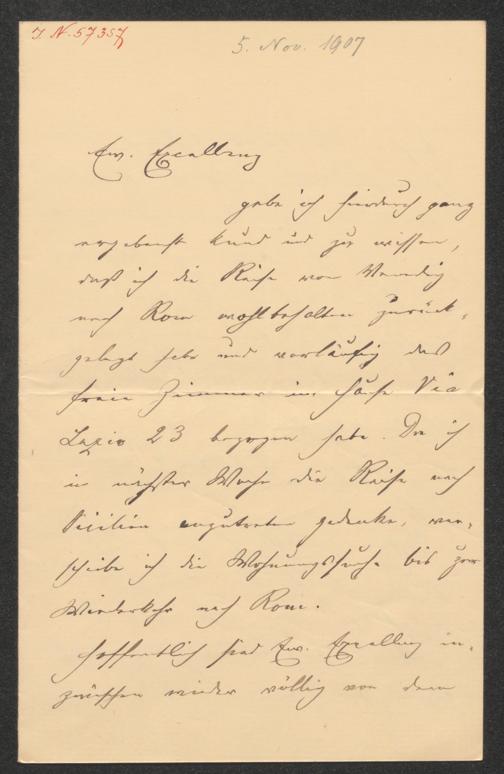 I. N. 57357
5. Nov. 1907
Ew. Excellenz
gebe ich hierdurch ganz
ergebenst kund und zu wissen,
daß ich die Reise von Venedig
nach Rom wohlbehalten zurück-
gelegt habe und vorläufig das
freie Zimmer im Hause Via
Lazio 23 bezogen habe. Da ich
in nächster Woche die Reise nach
Sicilien anzutreten gedenke, ver-
schiebe ich die Wohnungssuche bis zur
Wiederkehr nach Rom.
Hoffentlich sind Ew. Excellenz in-
zwischen wieder völlig von dem